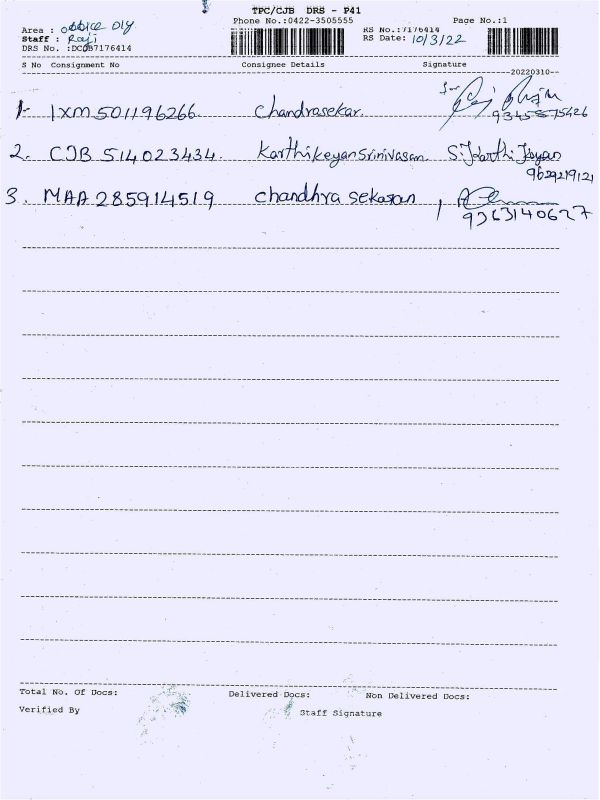 TPC/CJB DRS - P41
Phone No.:0422-3505555 Page No.:1
Area : office Dly
Staff : Raji
DRS No. :DCJB7176414
RS No.:7176414
RS Date: 10/3/22
S No Consignment No Consignee Details Signature
--20220310--
1- IXM 501196266 Chandrasekar.
2. CJB 514023434. Karthikeyan Srinivasan. S. Karthikeyan
9629219121
3. MAA 285914519 chandhra sekaran
9363140627
Total No. Of Docs: Delivered Docs: Non Delivered Docs:
Verified By Staff Signature